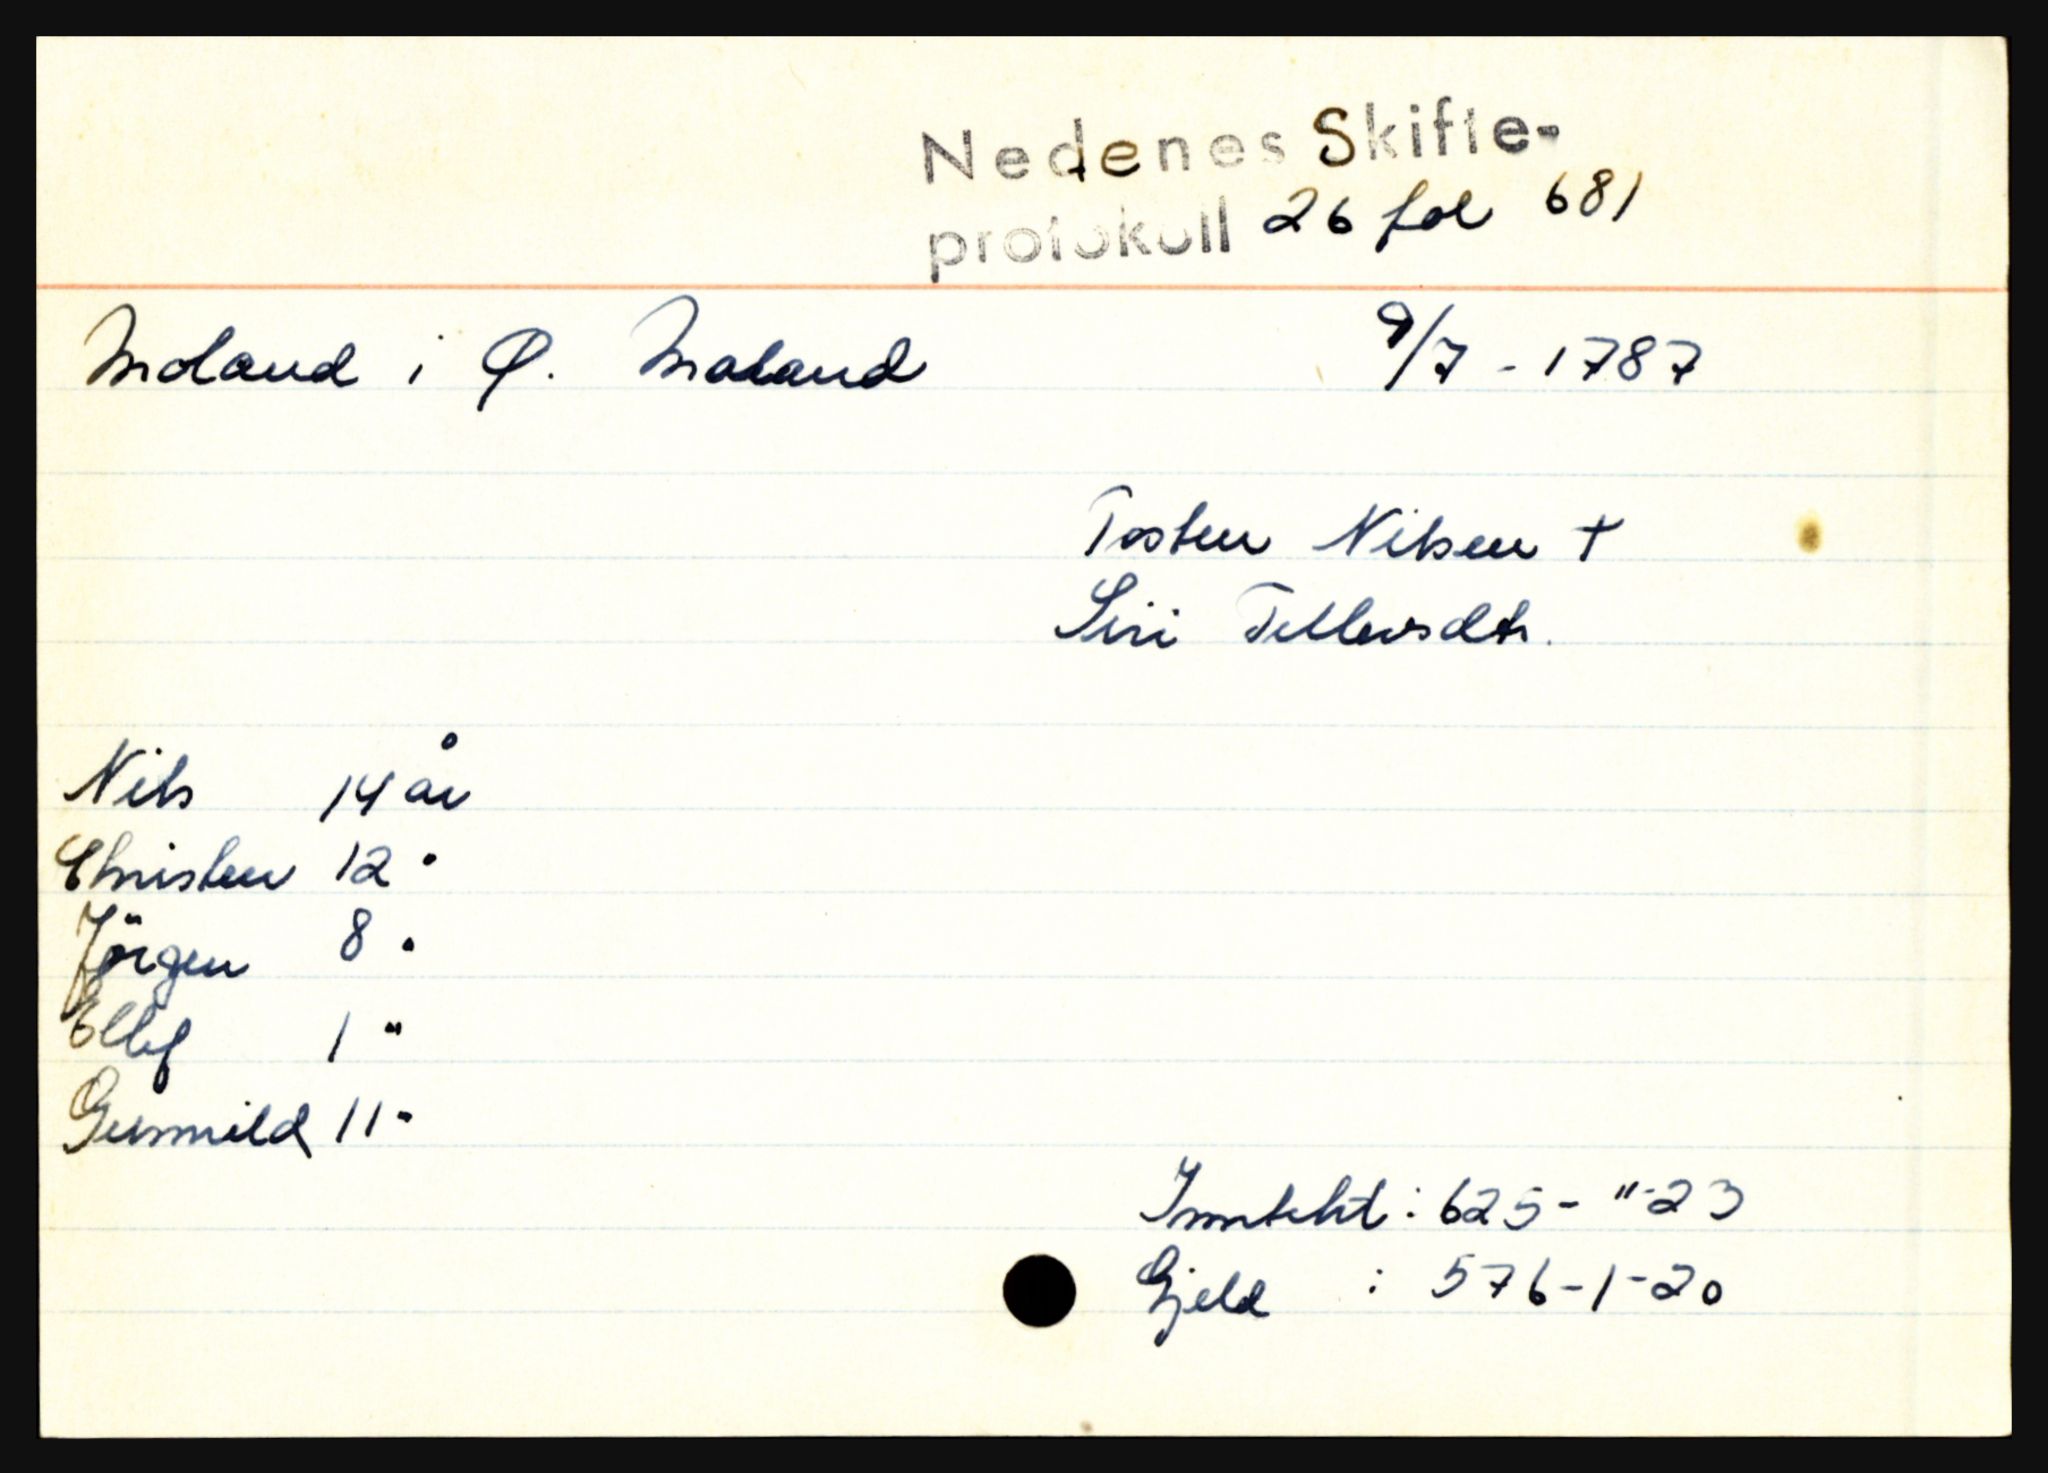 Nedenes Skifte-
protokoll 26 fol 681
Moland i Ø. Moland 9/7 - 1787
Tosten Nilsen +
Siri Tellevsdtr.
Nils 14 år
Christen 12 "
Jörgen 8 "
Ellef 1 "
Gunnild 11 "
Inntekt : 625 - " - 23
Gjeld : 576 - 1 - 20